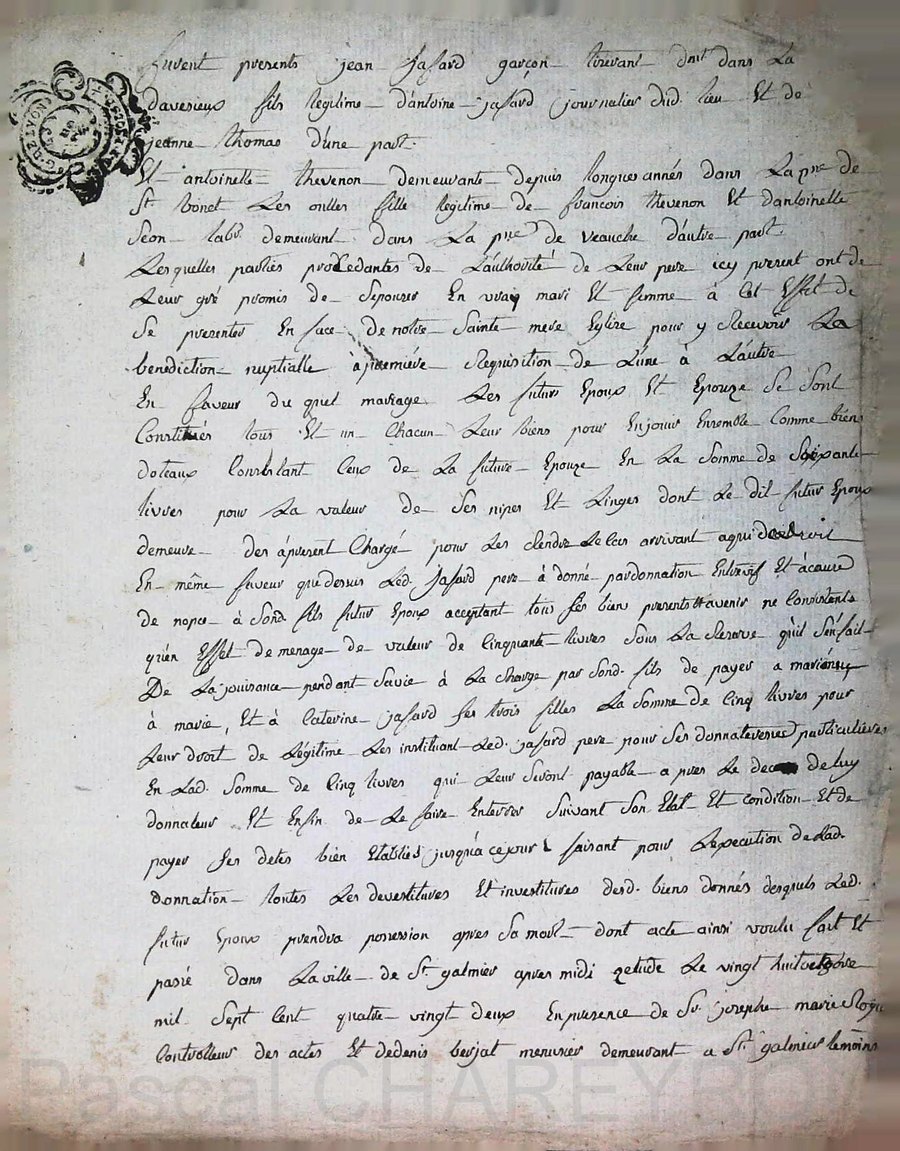 furent presents jean jasard garçon tixerant dmt dans La
davesieux fils legitime d'antoine jasard journalier dud. lieu Et de
jeanne thomas D'une part.
Et antoinette thevenon demeurante depuis longues annés dans La prre de
St bonet Les oulles fille legitime de francois thevenon Et dantoinette
Seon labr. demeurant dans La prre de veauche d'autre part.
Lesquelles parties procedantes de L'authorité de Leur pere icy present ont de
Leur gré promis de Sepouser En vray mari Et femme à Cet Effet de
Se presenter En face de notre Sainte mere Eglize pour y Recevoir La
benediction nuptialle à premiére Requisition de L'une à L'autre
En faveur du quel mariage Les futur Epoux Et Epouze Se Sont
Constitués tous Et un Chacun Leur biens pour En jouir Ensemble Comme biens
doteaux Consistant Ceux de La future Epouze En La Somme de Soixante
livres pour La valeur de Ses nipes Et Linges dont Le dit futur Epoux
demeure des àpresent Chargé pour Les Rendre Le Cas arrivant aqui de droit
En même faveur que dessus Led. Jasard pere à donné par donnation Entrevif Et àcause
de nopce à Sond. fils futur Epoux acceptant tous Ses bien presents Et avenir ne Consistents
qu'en Effet de menage de valeur de Cinquante livres Sous La Reserve qu'il S'en fait
De La jouisance pendant Sa vie à La Charge par Sond. fils de payer a
à marie, Et à Caterine jasard Ses trois filles La Somme de Cinq livres pour
Leur droit de Légitime Les instituant Led. jasard pere pour Ses donnateures particulieres
En Lad. Somme de Cinq livres qui Leur Seront payable apres Le deces de luy
donnateur Et Enfin de Le faire Enterrer Suivant Son Etat Et condition Et de
payer Ses detes bien Etablies jusqu'à ce jour faisant pour L'execution de Lad.
donnation toutes Les devestitures Et investitures desd. biens donnés desquels Led.
futur Epoux prendra possession apres Sa mort dont acte ainsi voulu fait Et
passé dans La ville de St galmier apres midi Etude Le vingt huit octobre
mil Sept Cent quatre vingt deux En presence de Sr. josephe marie
Controlleur des actes Et de denis berjat menusier demeurant a St. galmier temoins
Pascal CHAREYRON